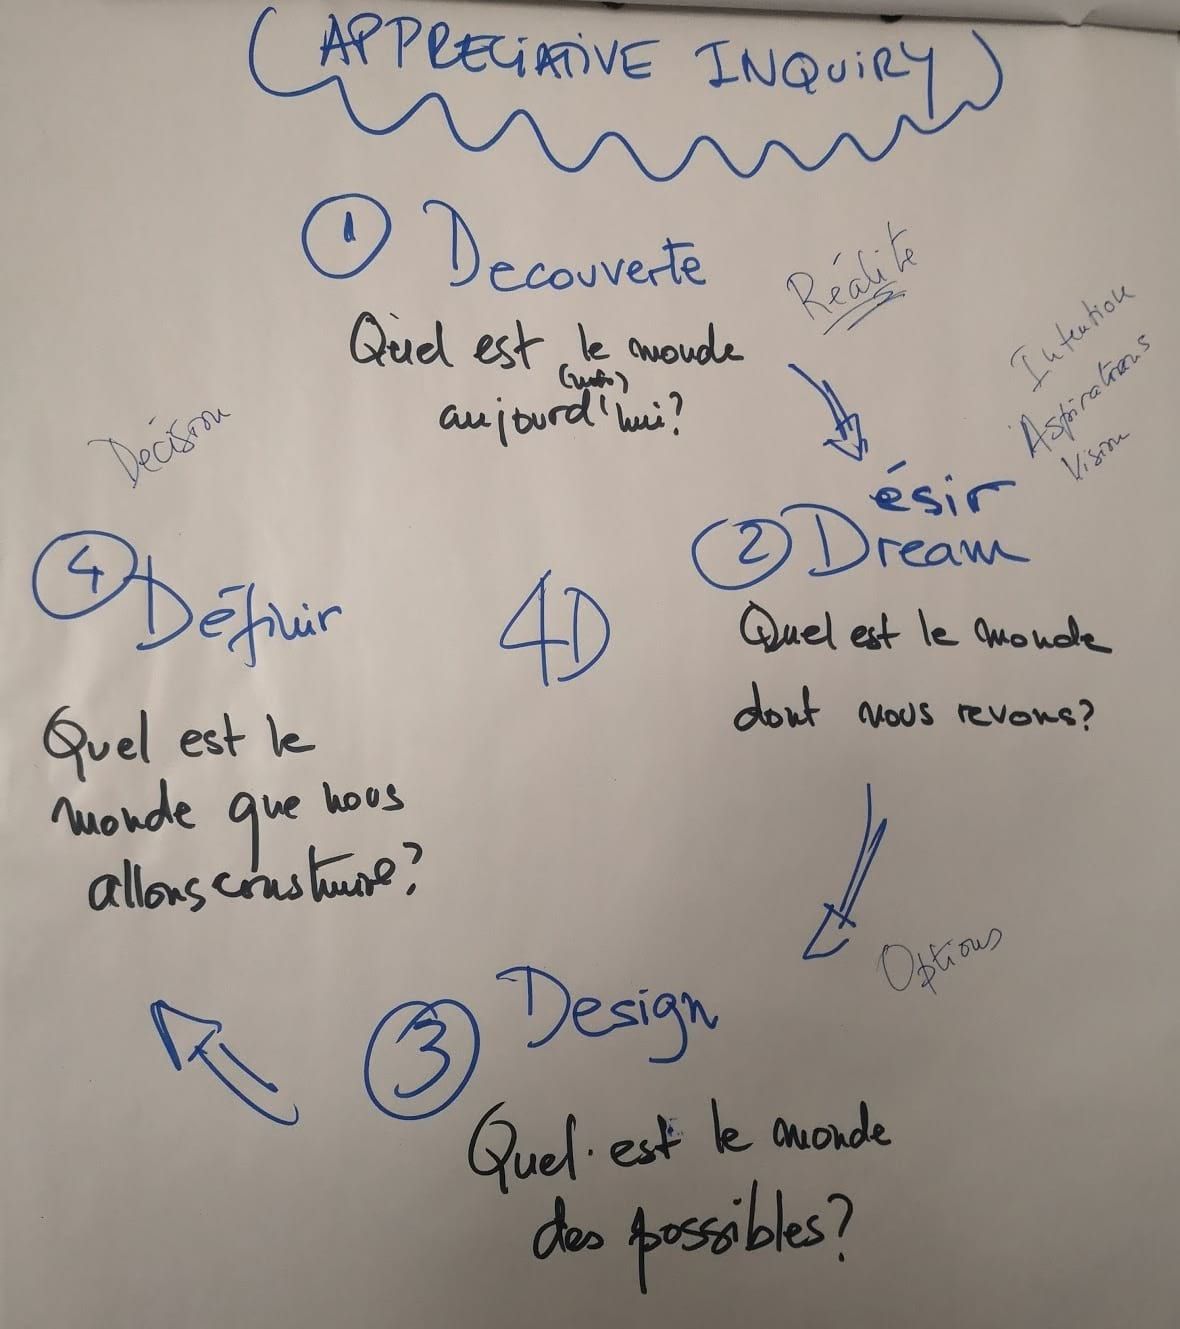 (APPRECIATIVE INQUIRY)
1 Decouverte
Réalité
Quel est le monde
aujourd'hui?
Intention
Aspirations
Vision
Décision
ésir
2 Dream
Quel est le monde
dont nous revons?
4 Définir
4D
Quel est le
monde que nous
allons construire?
Options
3 Design
Quel est le monde
des possibles?